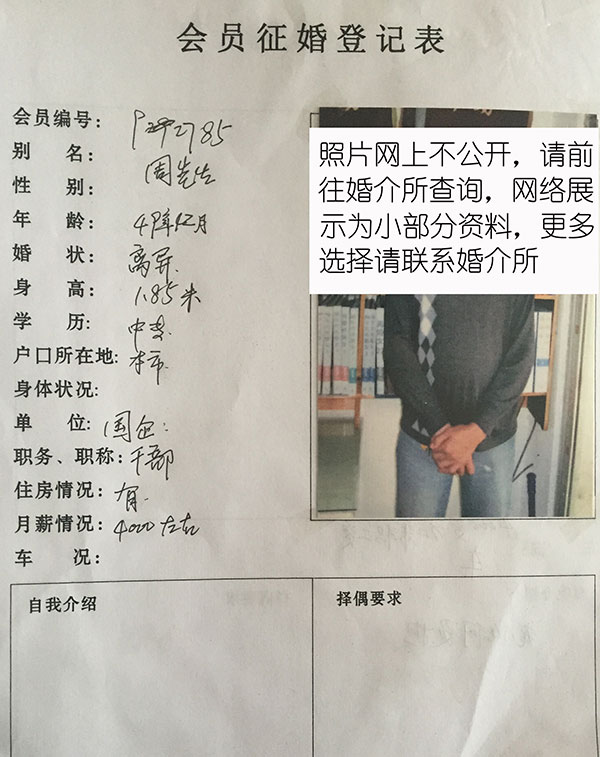 会员征婚登记表
会员编号: P2
别 名: 周先生
性 别:
年 龄:
婚 状: 离异.
身 高: 1.85米
学 历: 中专
户口所在地: 本市.
身体状况:
单 位: 国企.
职务、职称: 干部
住房情况: 有.
月薪情况: 4000左右
车 况:
照片网上不公开，请前
往婚介所查询，网络展
示为小部分资料，更多
选择请联系婚介所
自我介绍
择偶要求